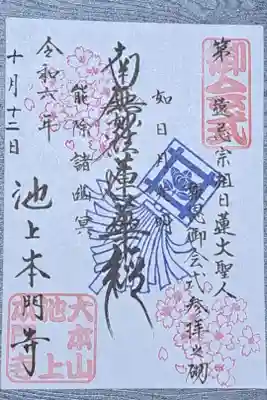 御会式
第遠忌宗祖日蓮大聖人
報恩御会式参拝之砌
如日月光明
南無妙法蓮華経
能除諸幽冥
令和六年
十月十二日
池上本門寺
大本山
池上
本門寺